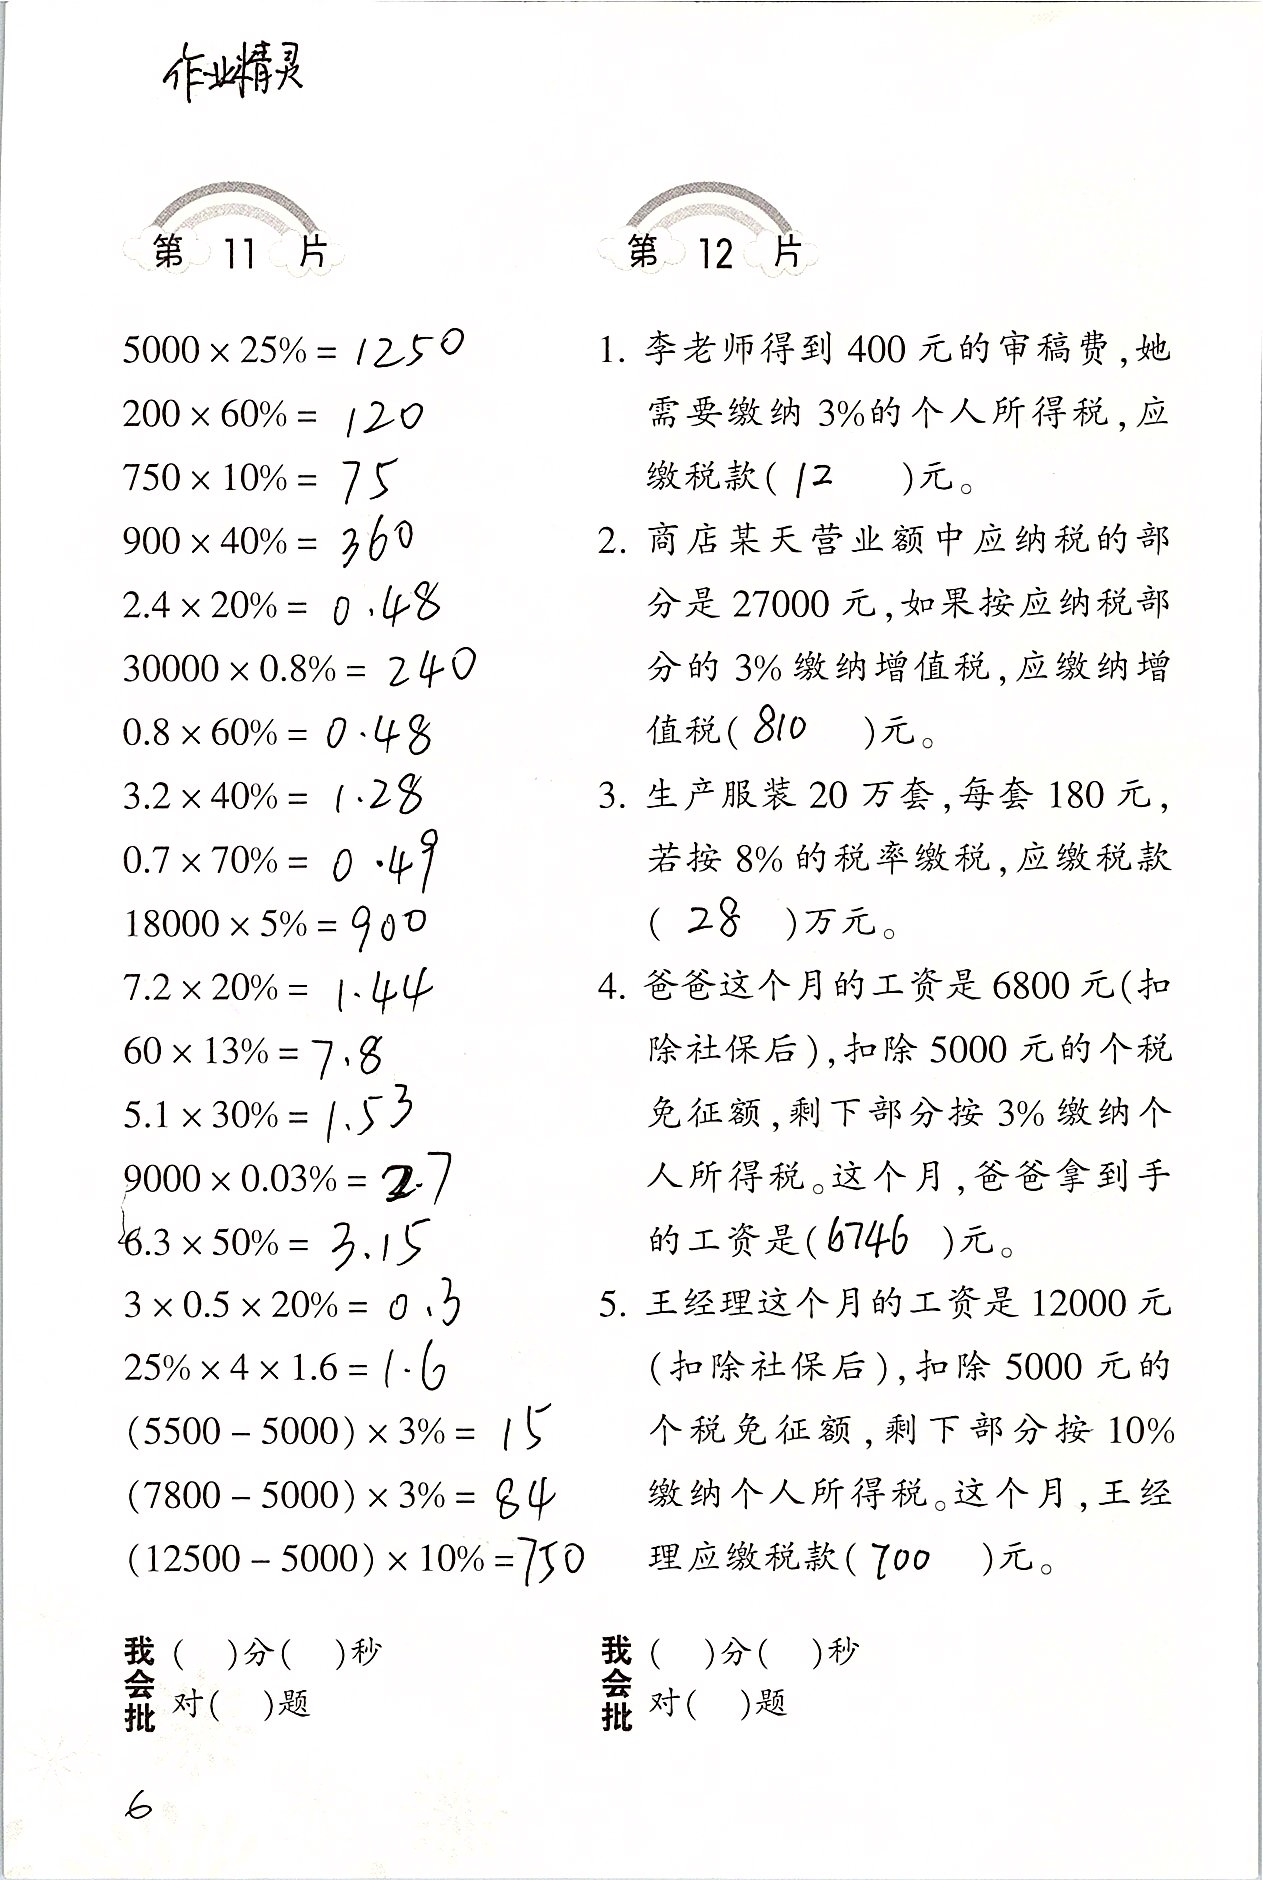 作业精灵
第 11 片
5000 × 25% = 1250
200 × 60% = 120
750 × 10% = 75
900 × 40% = 360
2.4 × 20% = 0.48
30000 × 0.8% = 240
0.8 × 60% = 0.48
3.2 × 40% = 1.28
0.7 × 70% = 0.49
18000 × 5% = 900
7.2 × 20% = 1.44
60 × 13% = 7.8
5.1 × 30% = 1.53
9000 × 0.03% = 2.7
6.3 × 50% = 3.15
3 × 0.5 × 20% = 0.3
25% × 4 × 1.6 = 1.6
(5500 − 5000) × 3% = 15
(7800 − 5000) × 3% = 84
(12500 − 5000) × 10% = 750
我会批
( )分( )秒
对( )题
第 12 片
1. 李老师得到 400 元的审稿费,她
需要缴纳 3%的个人所得税,应
缴税款( 12 )元。
2. 商店某天营业额中应纳税的部
分是 27000 元,如果按应纳税部
分的 3% 缴纳增值税,应缴纳增
值税( 810 )元。
3. 生产服装 20 万套,每套 180 元,
若按 8% 的税率缴税,应缴税款
( 28 )万元。
4. 爸爸这个月的工资是 6800 元(扣
除社保后),扣除 5000 元的个税
免征额,剩下部分按 3% 缴纳个
人所得税。这个月,爸爸拿到手
的工资是( 6746 )元。
5. 王经理这个月的工资是 12000 元
(扣除社保后),扣除 5000 元的
个税免征额,剩下部分按 10%
缴纳个人所得税。这个月,王经
理应缴税款( 700 )元。
我会批
( )分( )秒
对( )题
6